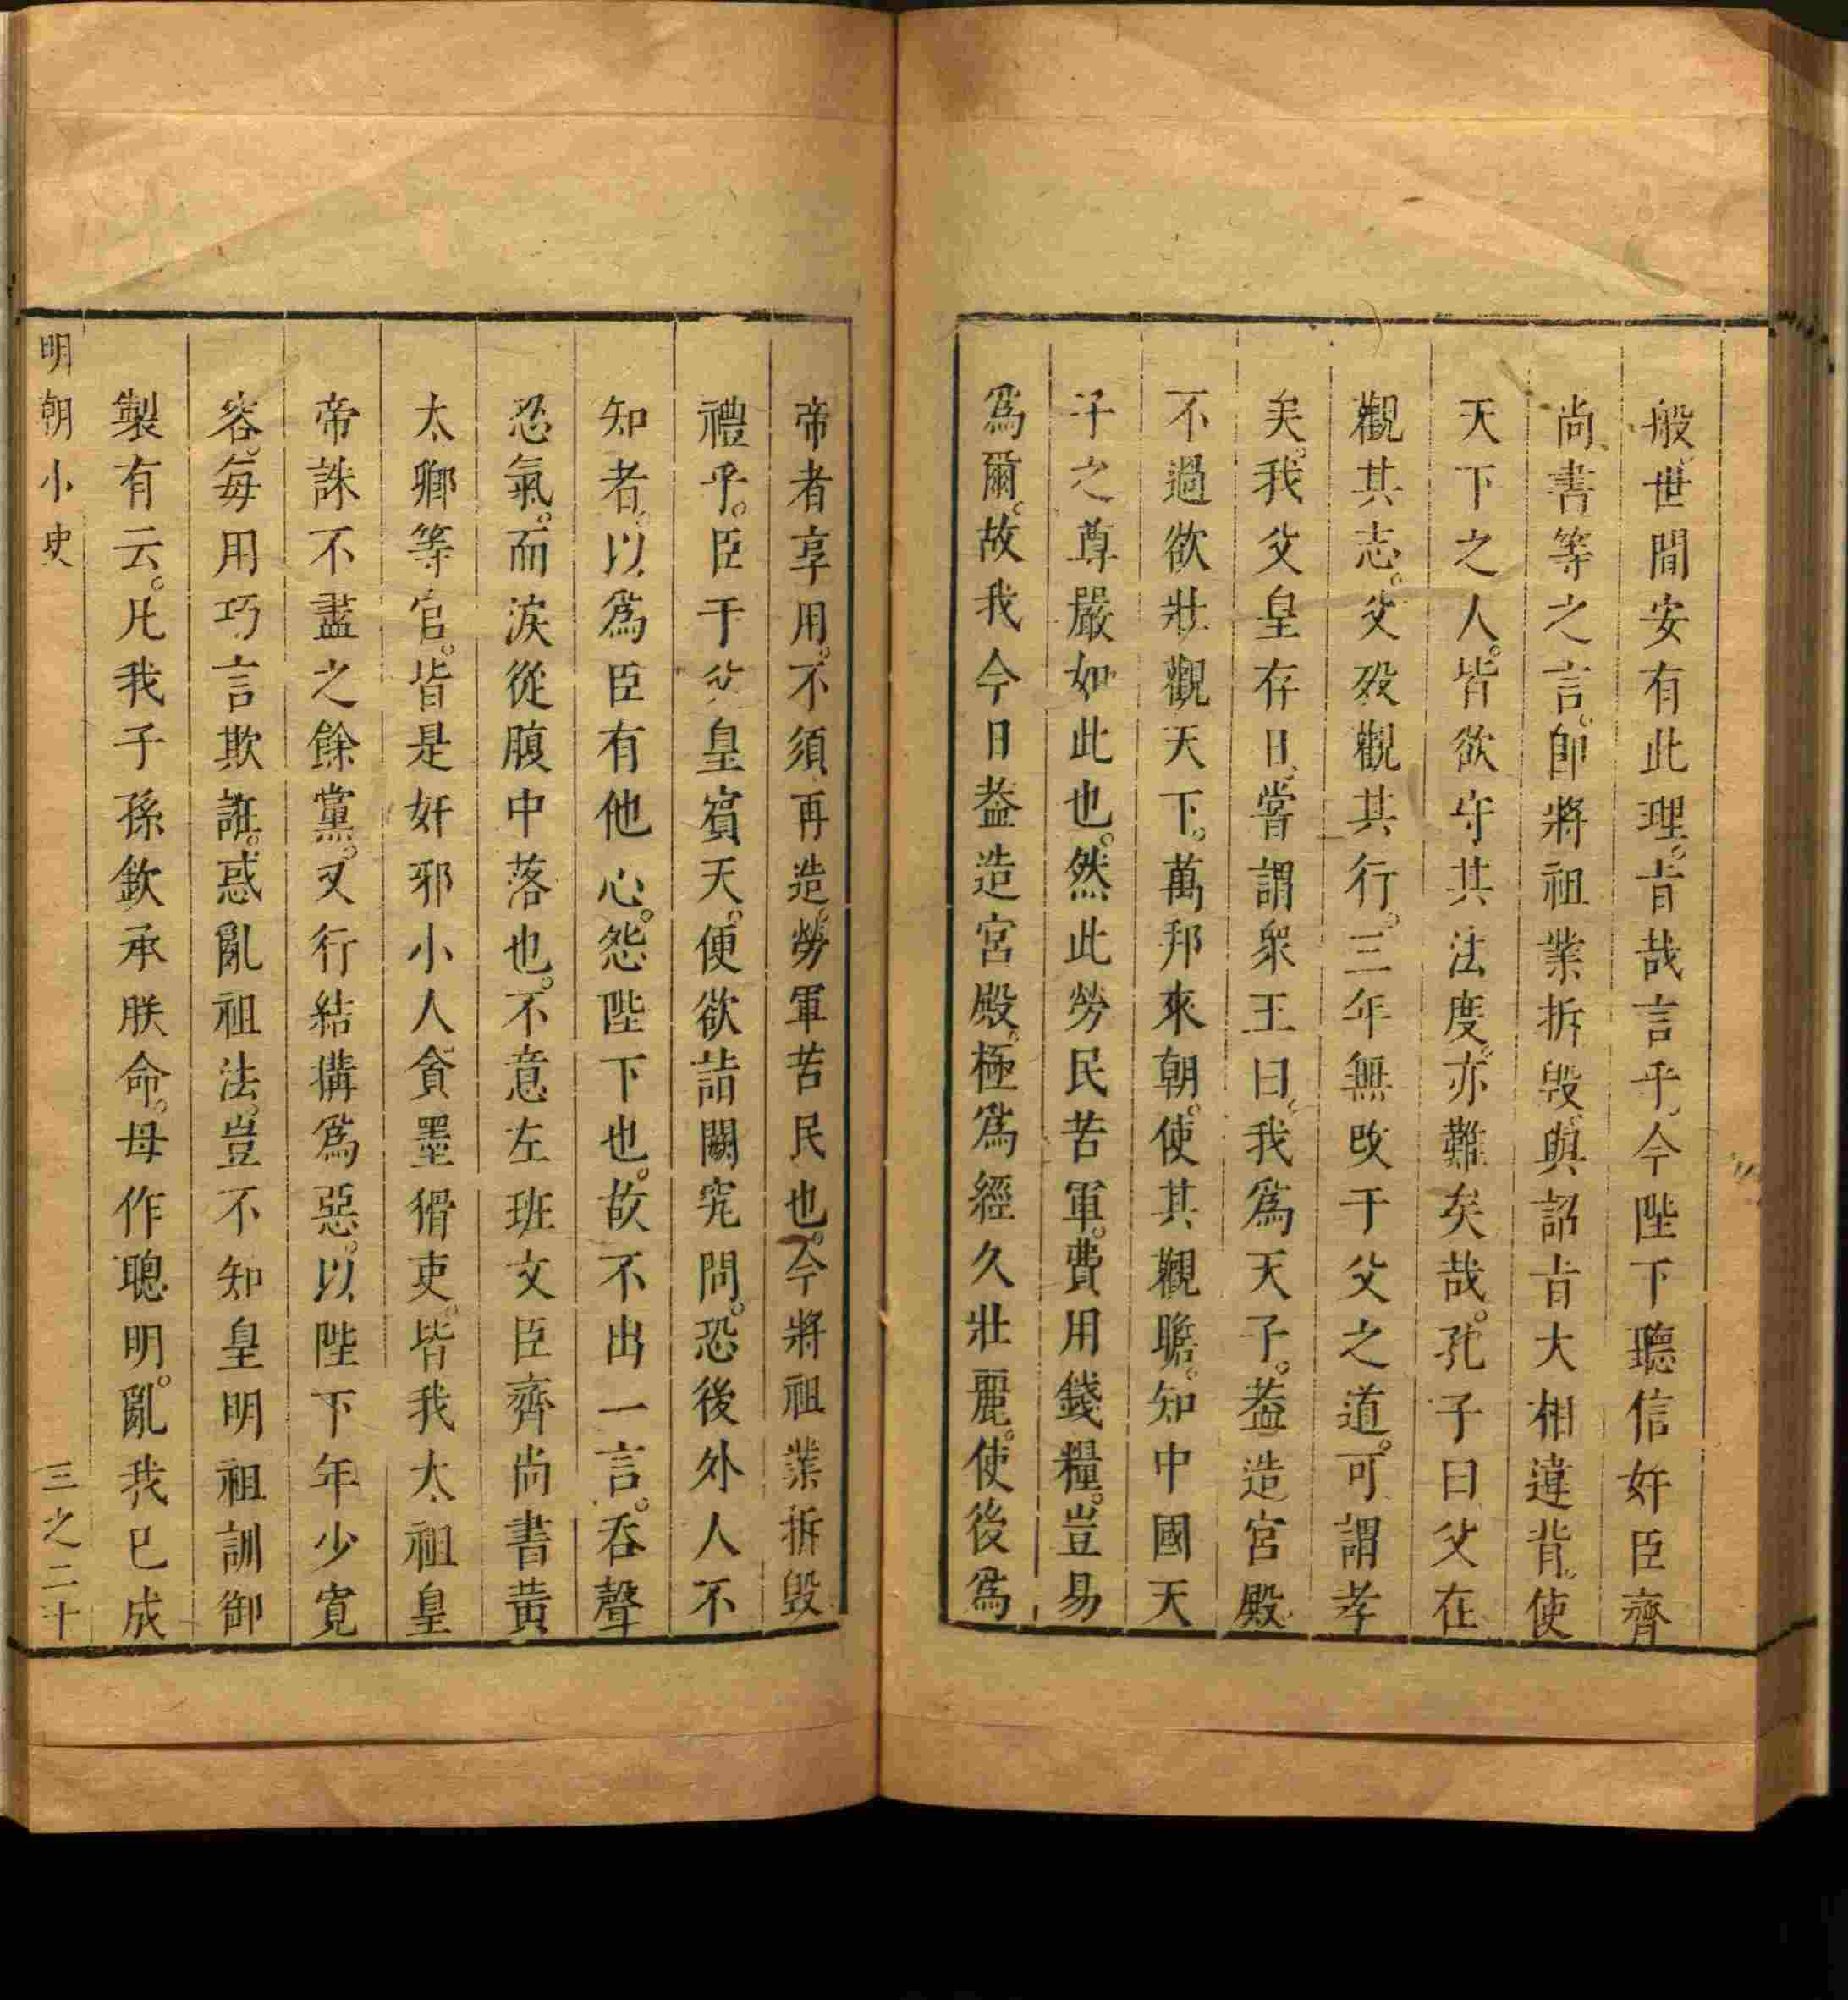 般。世間安有此理。旨哉言乎。今陛下聽信奸臣齊
尚書等之言。卽將祖業拆毀。與詔旨大相違背。使
天下之人。皆欲守其法度。亦難矣哉。孔子曰父在
觀其志。父歿觀其行。三年無改于父之道。可謂孝
矣。我父皇存日。嘗謂衆王曰。我爲天子。葢造宮殿
不過欲壯觀天下。萬邦來朝。使其觀瞻。知中國天
子之尊嚴如此也。然此勞民苦軍。費用錢糧。豈易
爲爾。故我今日葢造宮殿。極爲經久壯麗。使後爲
帝者享用。不須再造。勞軍苦民也。今將祖業拆毀
禮乎。臣于父皇賓天。便欲詣闕究問。恐後外人不
知者。以爲臣有他心。怨陛下也。故不出一言。吞聲
忍氣。而淚從腹中落也。不意左班文臣齊尚書黃
太卿等官。皆是奸邪小人貪墨猾吏。皆我太祖皇
帝誅不盡之餘黨。又行結搆爲惡。以陛下年少寛
容。每用巧言欺誑。惑亂祖法。豈不知皇明祖訓御
製有云。凡我子孫欽承朕命。毋作聰明。亂我已成
明朝小史
三之二十